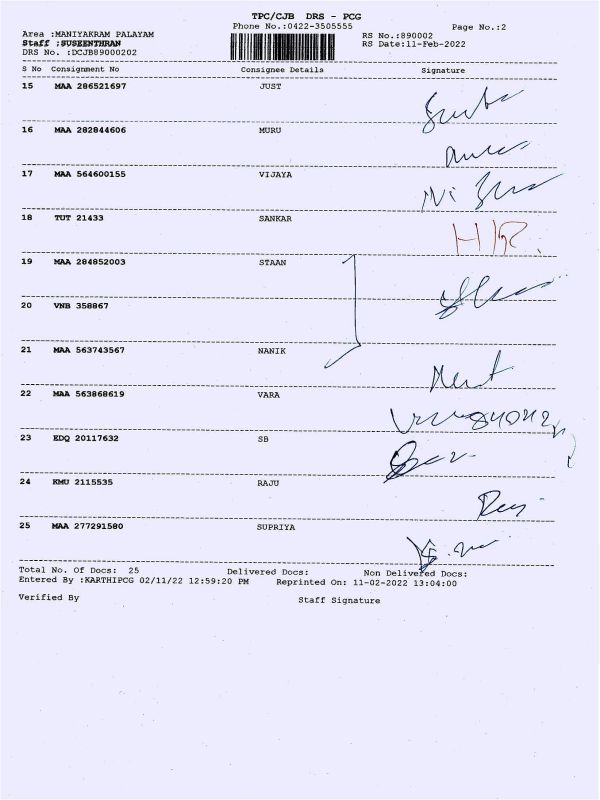 TPC/CJB DRS - PCG
Phone No.:0422-3505555
Page No.:2
Area :MANIYAKRAM PALAYAM
RS No.:890002
Staff :SUSEENTHRAN
RS Date:11-Feb-2022
DRS No. :DCJB89000202
S No Consignment No Consignee Details Signature
15 MAA 286521697 JUST
16 MAA 282844606 MURU
17 MAA 564600155 VIJAYA
18 TUT 21433 SANKAR
19 MAA 284852003 STAAN
20 VNB 358867
21 MAA 563743567 NANIK
22 MAA 563868619 VARA
23 EDQ 20117632 SB
24 KMU 2115535 RAJU
25 MAA 277291580 SUPRIYA
Total No. Of Docs: 25 Delivered Docs: Non Delivered Docs:
Entered By :KARTHIPCG 02/11/22 12:59:20 PM Reprinted On: 11-02-2022 13:04:00
Verified By Staff Signature